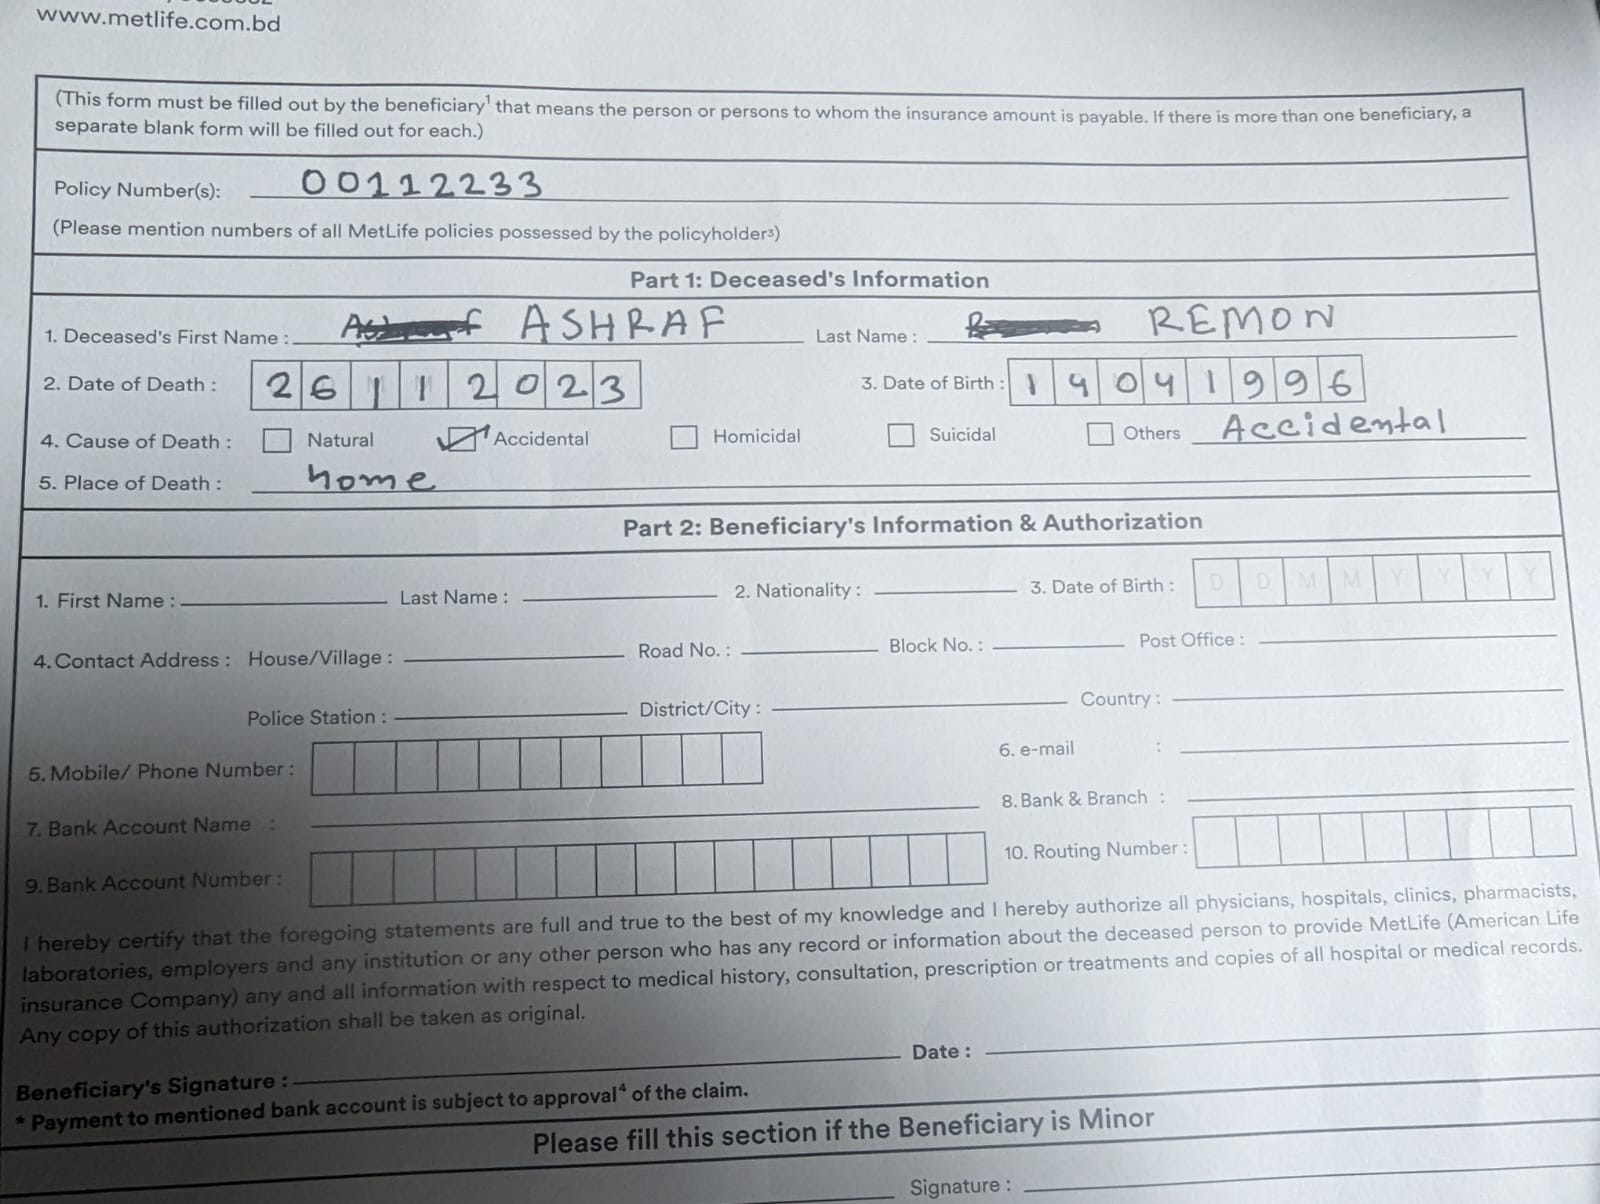 www.metlife.com.bd
(This form must be filled out by the beneficiary¹ that means the person or persons to whom the insurance amount is payable. If there is more than one beneficiary, a
separate blank form will be filled out for each.)
Policy Number(s): 00112233
(Please mention numbers of all MetLife policies possessed by the policyholder³)
Part 1: Deceased's Information
1. Deceased's First Name : ASHRAF Last Name : REMON
2. Date of Death : 26112023 3. Date of Birth : 19041996
4. Cause of Death : Natural Accidental Homicidal Suicidal Others Accidental
5. Place of Death : home
Part 2: Beneficiary's Information & Authorization
1. First Name : Last Name : 2. Nationality : 3. Date of Birth : D D M M Y Y Y Y
4. Contact Address : House/Village : Road No. : Block No. : Post Office :
Police Station : District/City : Country :
5. Mobile/ Phone Number : 6. e-mail :
7. Bank Account Name : 8. Bank & Branch :
9. Bank Account Number : 10. Routing Number :
I hereby certify that the foregoing statements are full and true to the best of my knowledge and I hereby authorize all physicians, hospitals, clinics, pharmacists,
laboratories, employers and any institution or any other person who has any record or information about the deceased person to provide MetLife (American Life
insurance Company) any and all information with respect to medical history, consultation, prescription or treatments and copies of all hospital or medical records.
Any copy of this authorization shall be taken as original.
Beneficiary's Signature : Date :
* Payment to mentioned bank account is subject to approval⁴ of the claim.
Please fill this section if the Beneficiary is Minor
Signature :